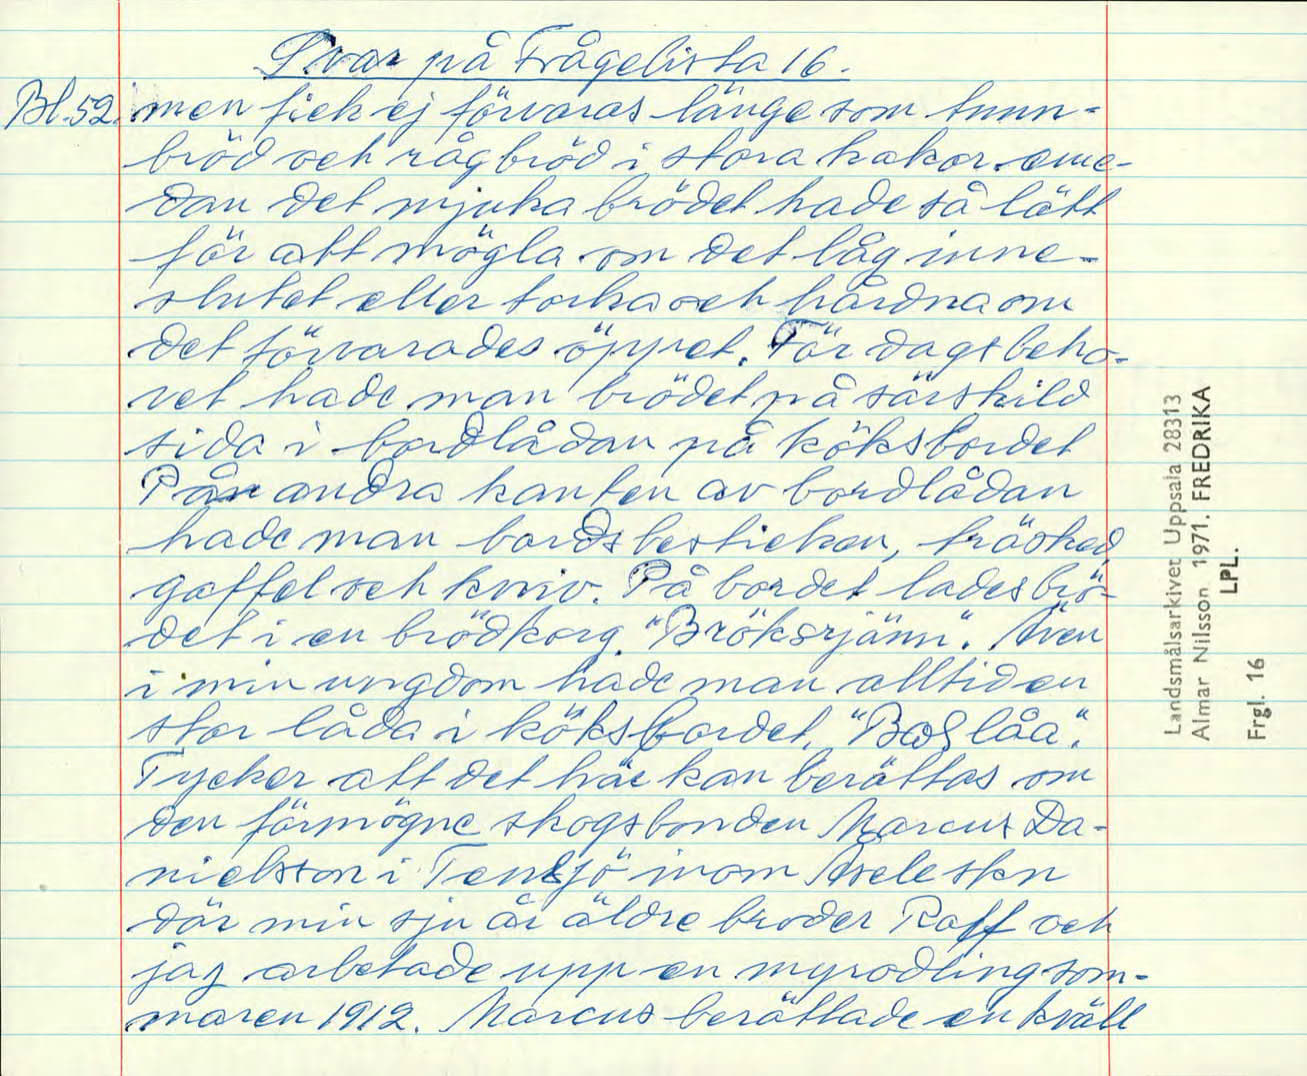 Svar på Frågelista 16.
Bl. 52. men fick ej förvaras länge som tunn-
bröd och rågbröd i stora kakor. eme-
dan det mjuka brödet hade så lätt
för att mögla om det låg inne-
slutet eller torka och hårdna om
det förvarades öppet. För dagsbeho-
vet hade man brödet på särskild
sida i bordlådan på köksbordet
På andra kanten av bordlådan
hade man bordsbesticken, träsked,
gaffel och kniv. På bordet lades brö-
det i en brödkorg. "Bröksrjänn". Även
i min ungdom hade man alltid en
stor låda i köksbordet, "Boſ låa".
Tycker att det här kan berättas om
den förmögne skogsbonden Marcus Da-
nielsson i Tensjö inom Åsele skn
där min sju år äldre broder Raff och
jag arbetade upp en myrodling som-
maren 1912. Marcus berättade en kväll
Landsmålsarkivet Uppsala 28313
Almar Nilsson 1971. FREDRIKA
LPL.
Frgl. 16